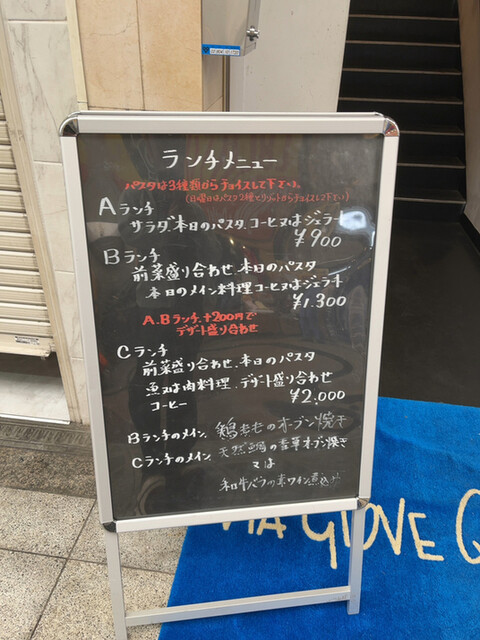 ランチメニュー
パスタは3種類からチョイスして下さい。
(日曜日はパスタ2種とリゾットからチョイスして下さい)
Aランチ
サラダ、本日のパスタ、コーヒー又はジェラート
¥900
Bランチ
前菜盛り合わせ、本日のパスタ
本日のメイン料理、コーヒー又はジェラート
¥1.300
A.Bランチ、+200円で
デザート盛り合わせ
Cランチ
前菜盛り合わせ、本日のパスタ
魚又は肉料理、デザート盛り合わせ
コーヒー
¥2,000
Bランチのメイン、鶏ももものオーブン焼き
Cランチのメイン、天然鯛の香草オーブン焼き
又は
和牛バラの赤ワイン煮込み
VIA GIOVE